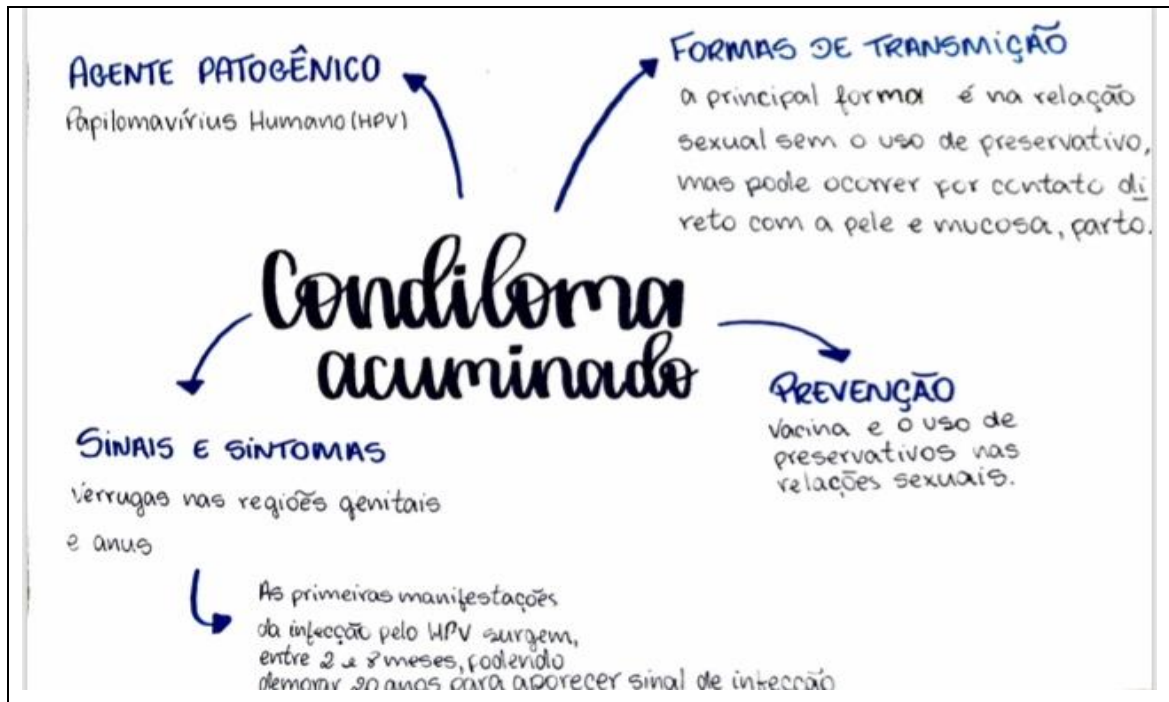 AGENTE PATOGÊNICO
Papilomavírius Humano (HPV)
FORMAS DE TRANSMIÇÃO
a principal forma é na relação
sexual sem o uso de preservativo,
mas pode ocorrer por contato di
reto com a pele e mucosa, parto.
Condiloma
acuminado
PREVENÇÃO
Vacina e o uso de
preservativos nas
relações sexuais.
SINAIS E SINTOMAS
Verrugas nas regiões genitais
e anus
As primeiras manifestações
da infecção pelo HPV surgem,
entre 2 e 8 meses, podendo
demorar 20 anos para aparecer sinal de infecção